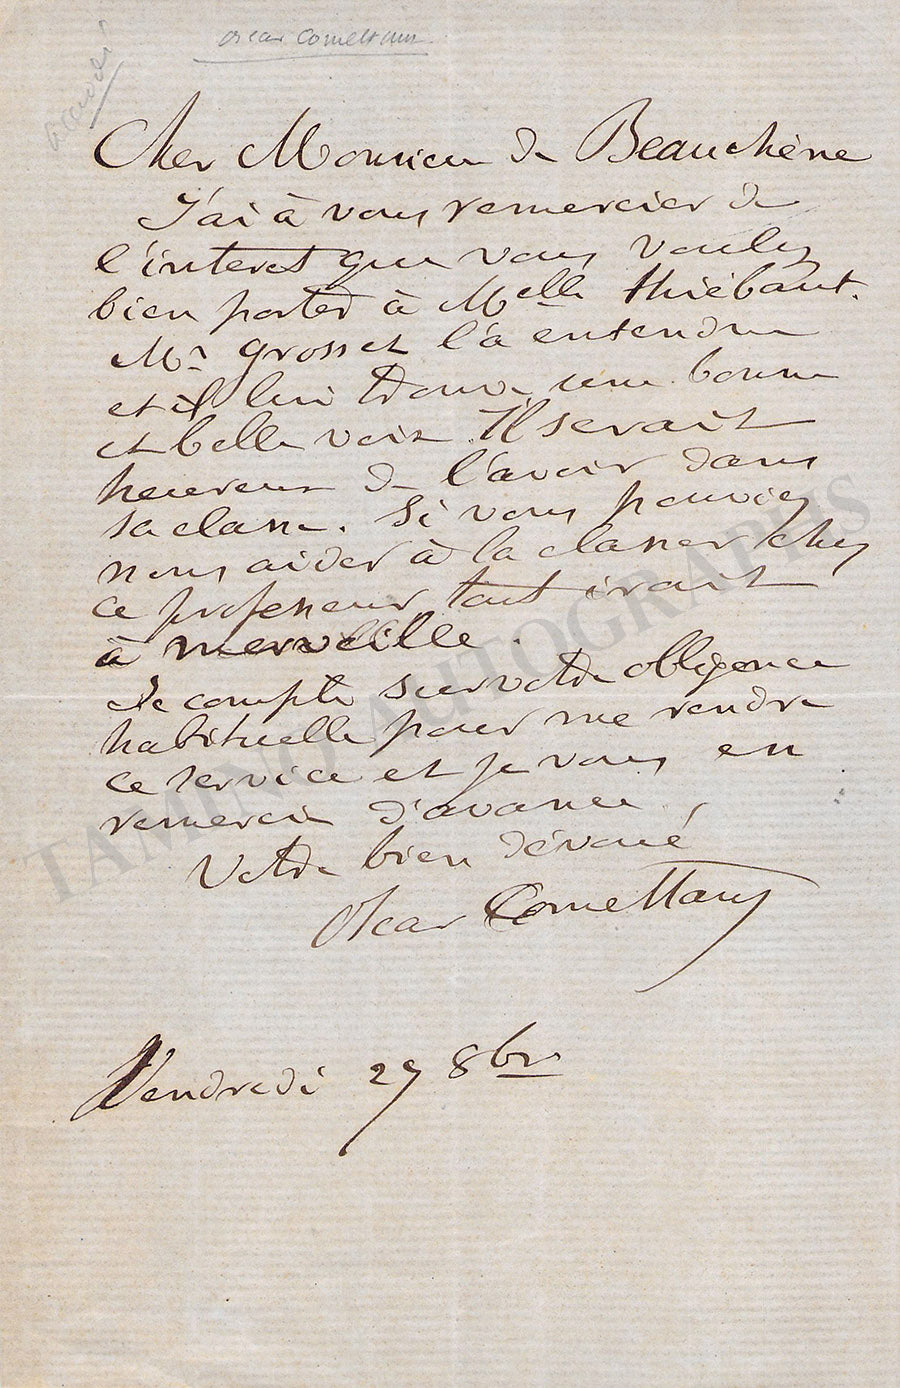 Oscar Comettant
accordé
Cher Monsieur de Beauchêne
J'ai à vous remercier de
l'interet que vous voulez
bien porter à Melle Thiébaut.
Mr grosset l'a entendue
et il lui trouve une bonne
et belle voix. Il serait
heureux de l'avoir dans
sa classe. Si vous pouviez
nous aider à la classer chez
ce professeur tout irait
à merveille.
Je compte sur votre obligence
habituelle pour me rendre
ce service et je vous en
remercie d'avance.
Votre bien dévoué
Oscar Comettant
Vendredi 29 8bre
TAMINO AUTOGRAPHS